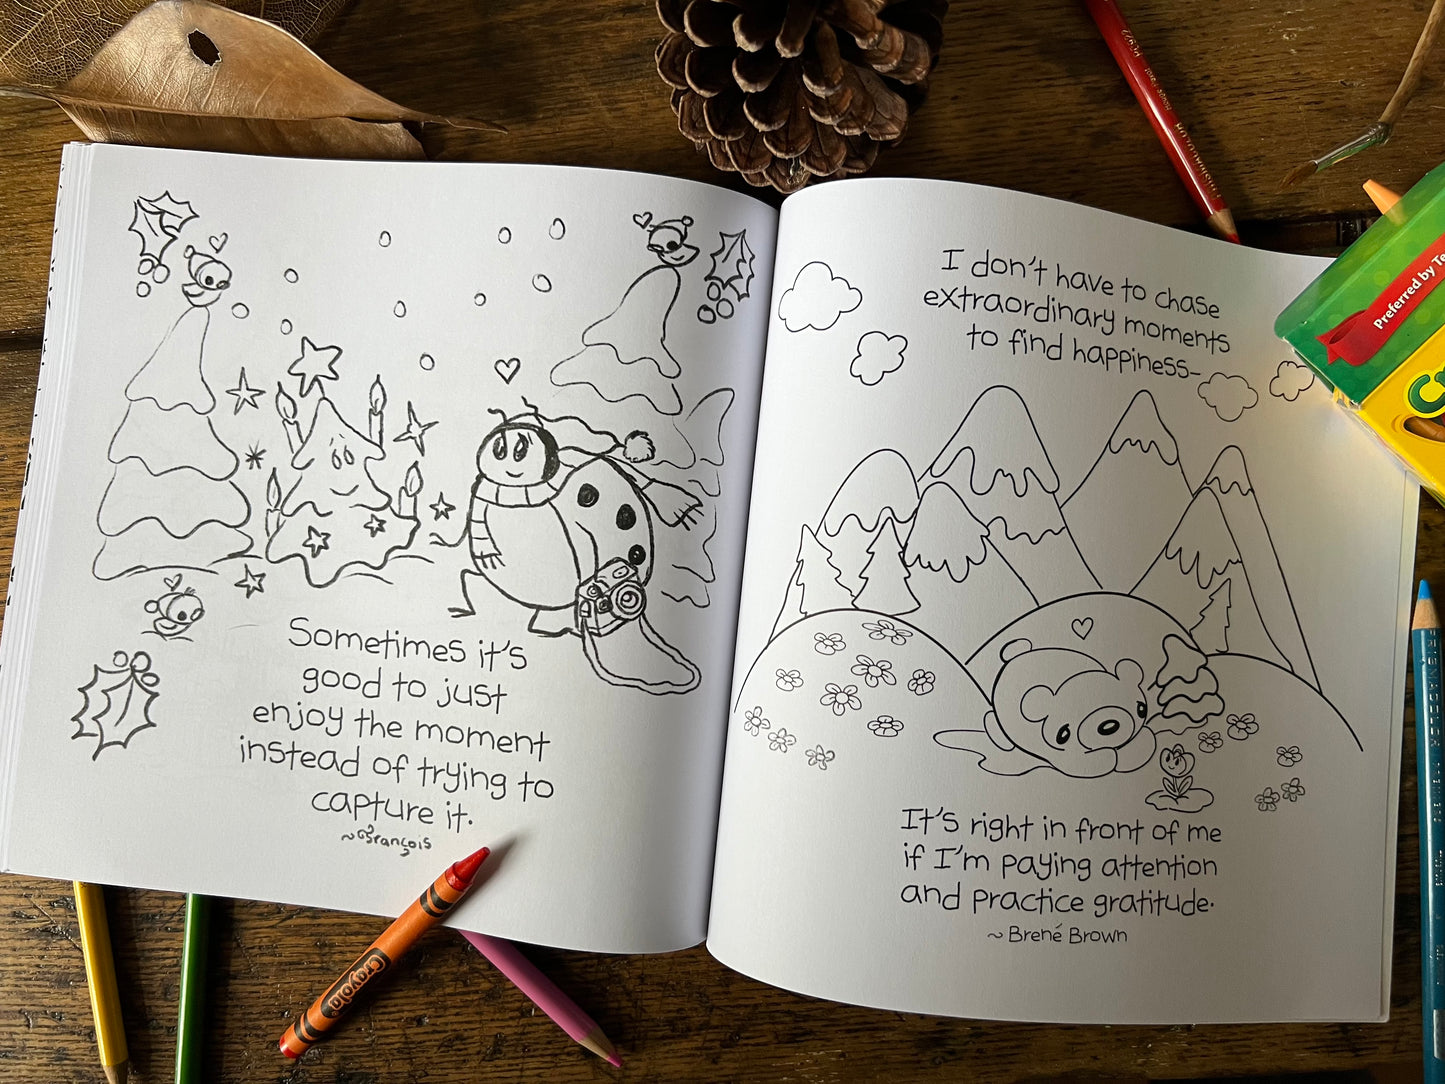 Sometimes it's
good to just
enjoy the moment
instead of trying to
capture it.
~François
I don't have to chase
extraordinary moments
to find happiness-
It's right in front of me
if I'm paying attention
and practice gratitude.
~ Brené Brown
Preferred by Te
Crayola